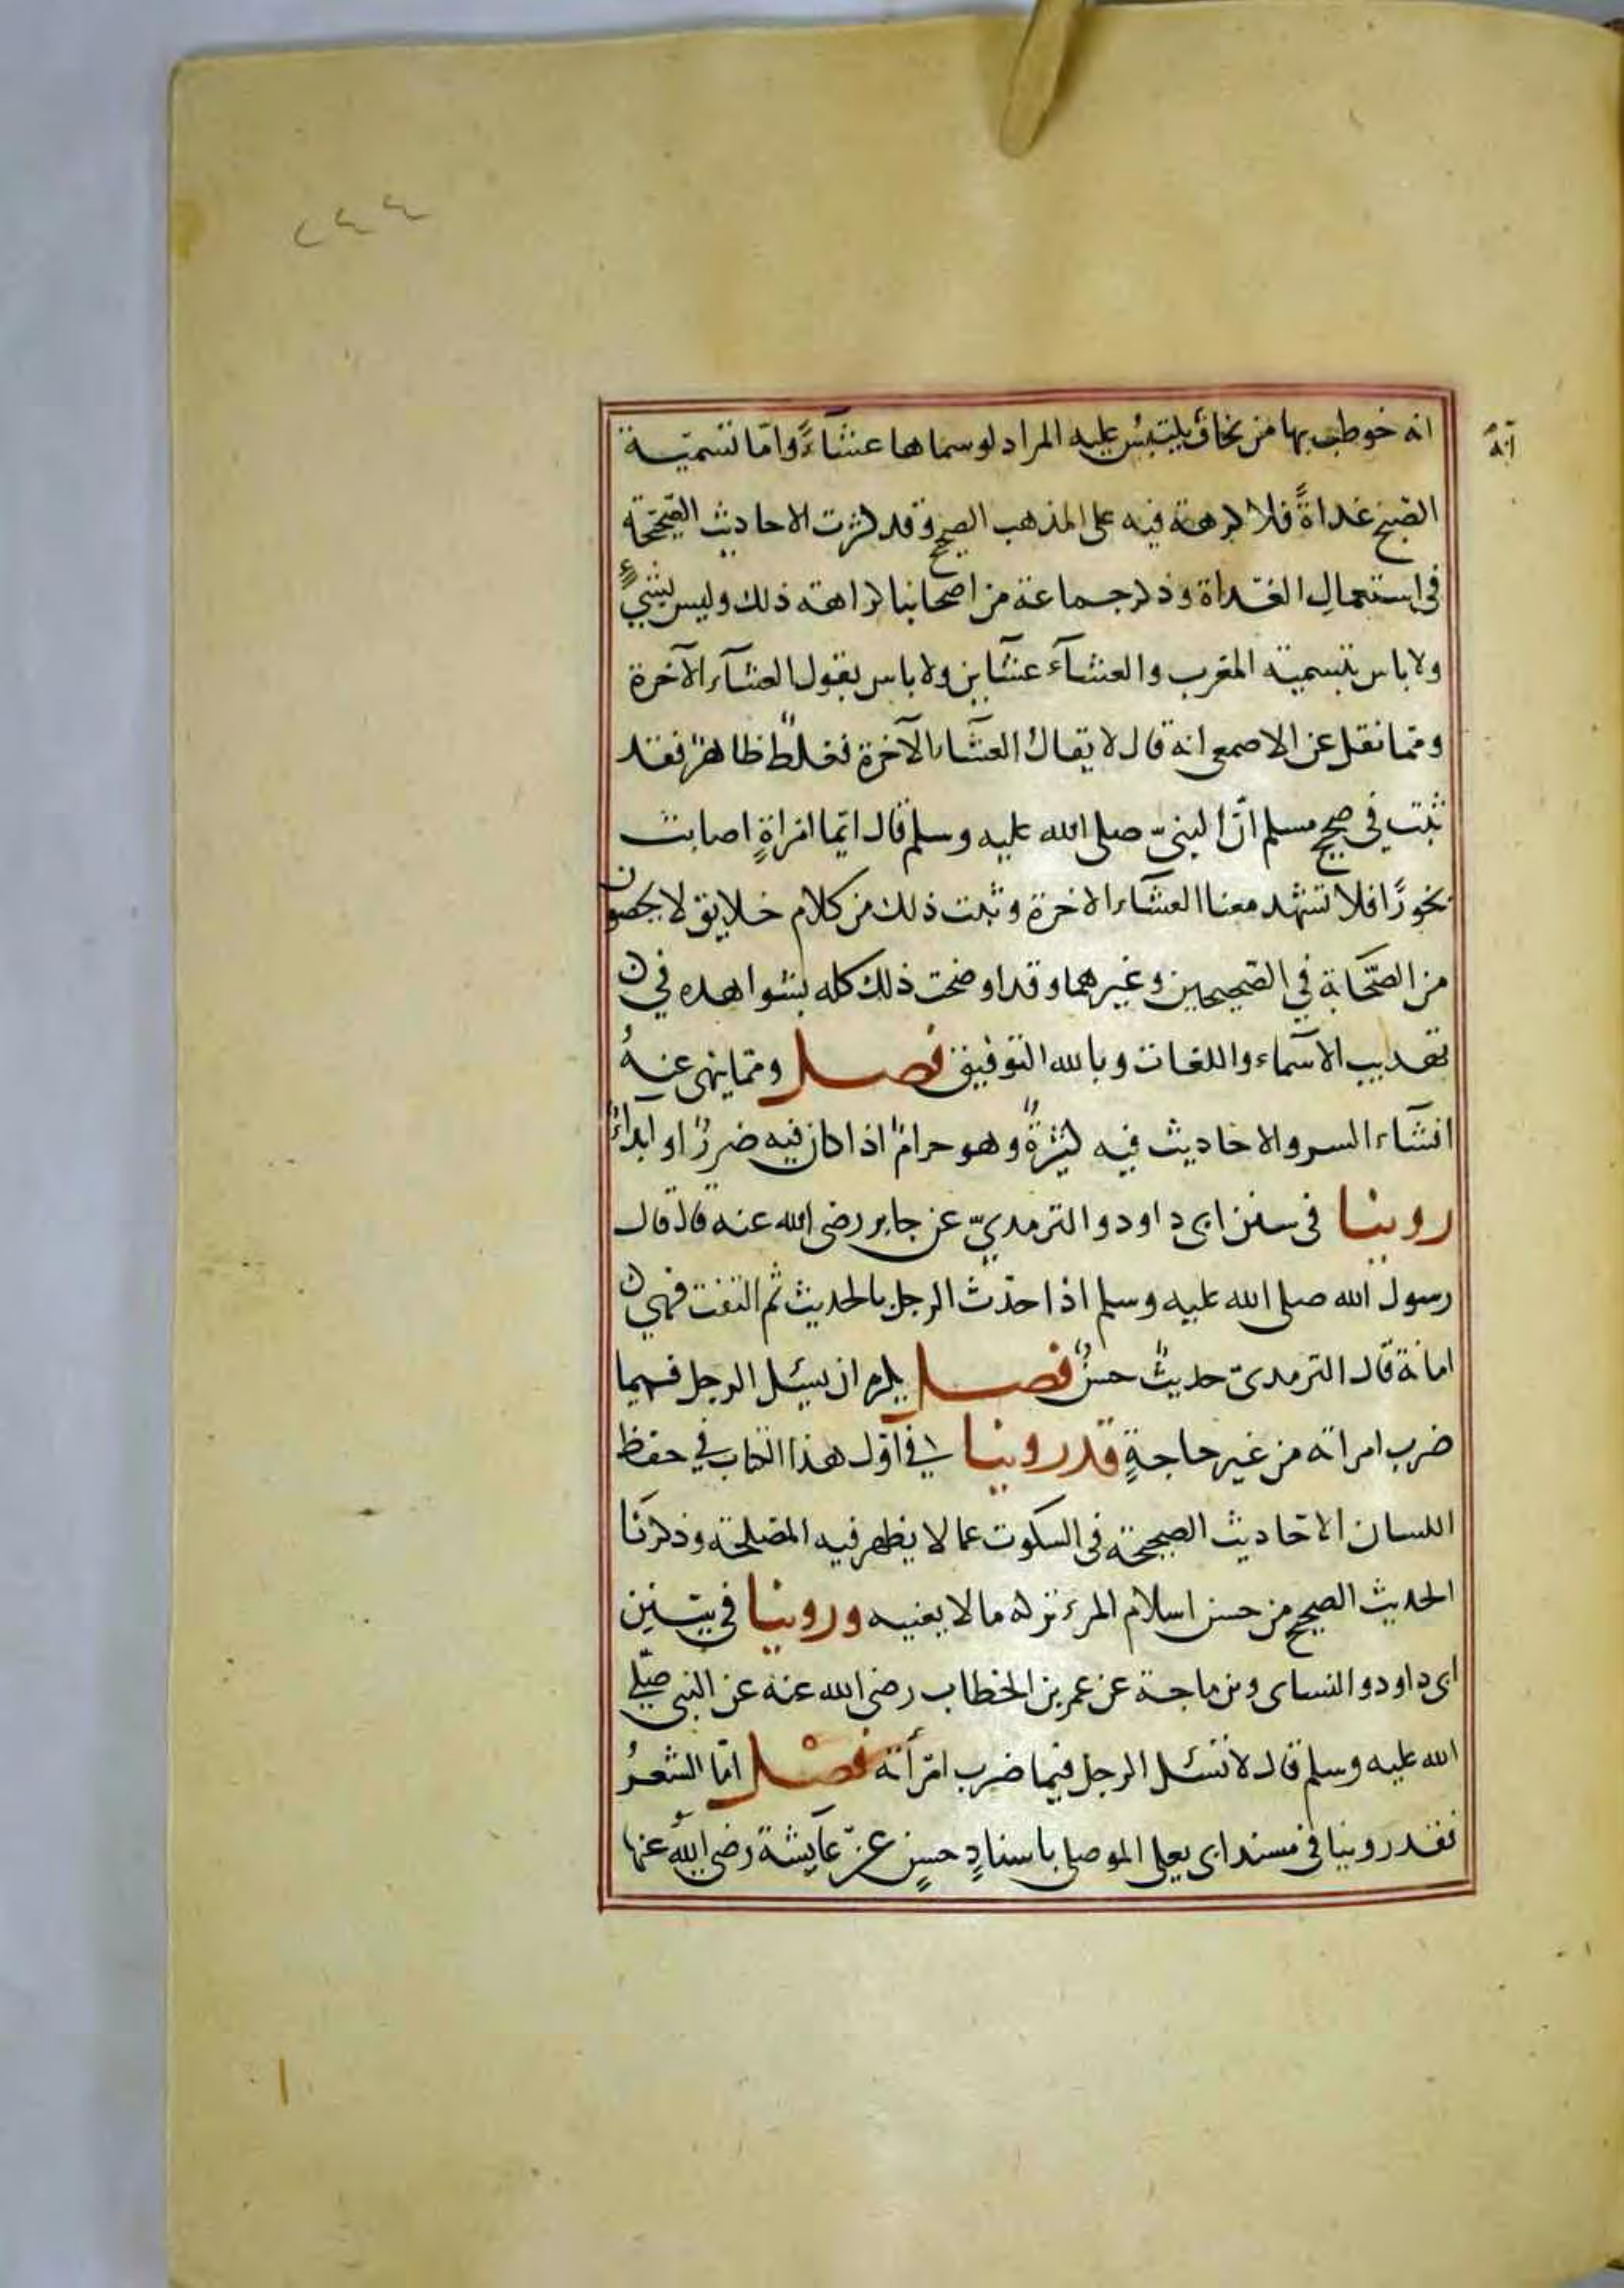 ٢٤٤
انه
انه خوطب بها من يخاف يلتبس عليه المراد لو سماها عشاءً وامّا تسمية
الصبح غداةً فلا كرهة فيه على المذهب الصحيح وقد كثرت الاحاديث الصّحيحة
في استعمال الغداة وذكر جماعة من اصحابنا كراهته ذلك وليس بشيءٍ
ولا باس بتسمية المغرب والعشآء عشاين ولا باس بقول العشآء الآخرة
وممّا نقل عن الاصمعى انه قال لا يقال العشآء الآخرة فغلطٌ ظاهرٌ فقد
ثبت في صحيح مسلم انّ النبيّ صلى الله عليه وسلم قال ايّما امراةٍ اصابت
بخورًا فلا تشهد معنا العشآء الاخرة وثبت ذلك من كلام خلايق لا يحصون
من الصّحابة في الصّحيحين وغيرهما وقد اوضحت ذلك كله بشواهده في
تهديب الاسمآء واللغات وبالله التوفيق فصل وممّا ينهى عنهُ
افشآء السر والاحاديث فيه كثيرةٌ وهو حرامٌ اذا كان فيه ضررٌ او ايداءٌ
روينا في سنن ابى داود والترمديّ عن جابر رضى الله عنه قال قال
رسول الله صلى الله عليه وسلم اذا حدّث الرجل بالحديث ثم التفت فهي
امانة قال الترمدىّ حديثٌ حسنٌ فصل يكره ان يسئل الرجل فيما
ضرب امراته من غير حاجةٍ قد روينا في اوّل هذا الكتاب في حفظ
اللسان الاحاديث الصحيحة في السكوت عما لا يظهر فيه المصلحة وذكرنا
الحديث الصحيح من حسن اسلام المرء تركه ما لا يعنيه وروينا في سنن
ابى داود والنساى وبن ماجة عن عمر بن الخطاب رضى الله عنه عن النبى صلّى
الله عليه وسلم قال لا تسئل الرجل فيما ضرب امرأته فصل امّا الشعرُ
فقد روينا في مسند ابى يعلى الموصلى باسنادٍ حسنٍ عن عآيشة رضى الله عنها